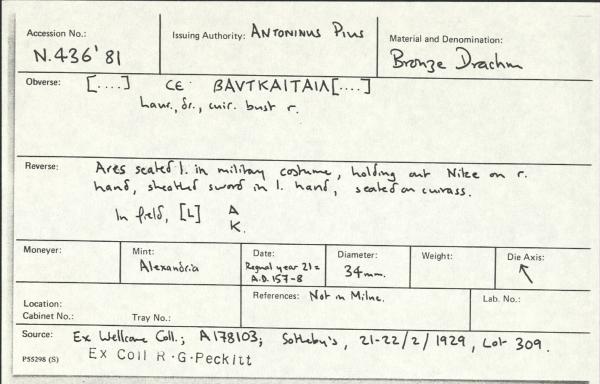 Accession No.:
N.436'81
Issuing Authority: ANTONINUS PIUS
Material and Denomination:
Bronze Drachm
Obverse: [....] CE BAVTKAITAIΛ[....]
Laur., dr., cuir. bust r.
Reverse: Ares seated l. in military costume, holding out Nike on r.
hand, sheathed sword in l. hand, seated on cuirass.
In field, [L] A
K.
Moneyer:
Mint:
Alexandria
Date:
Regnal year 21 =
A.D. 157-8
Diameter:
34mm.
Weight:
Die Axis:
↖
Location:
Cabinet No.:
Tray No.:
References: Not in Milne.
Lab. No.:
Source: Ex Wellcome Coll.; A178103; Sotheby's, 21-22/2/1929, Lot 309.
P55298 (S)
Ex Coll R.G.Peckitt